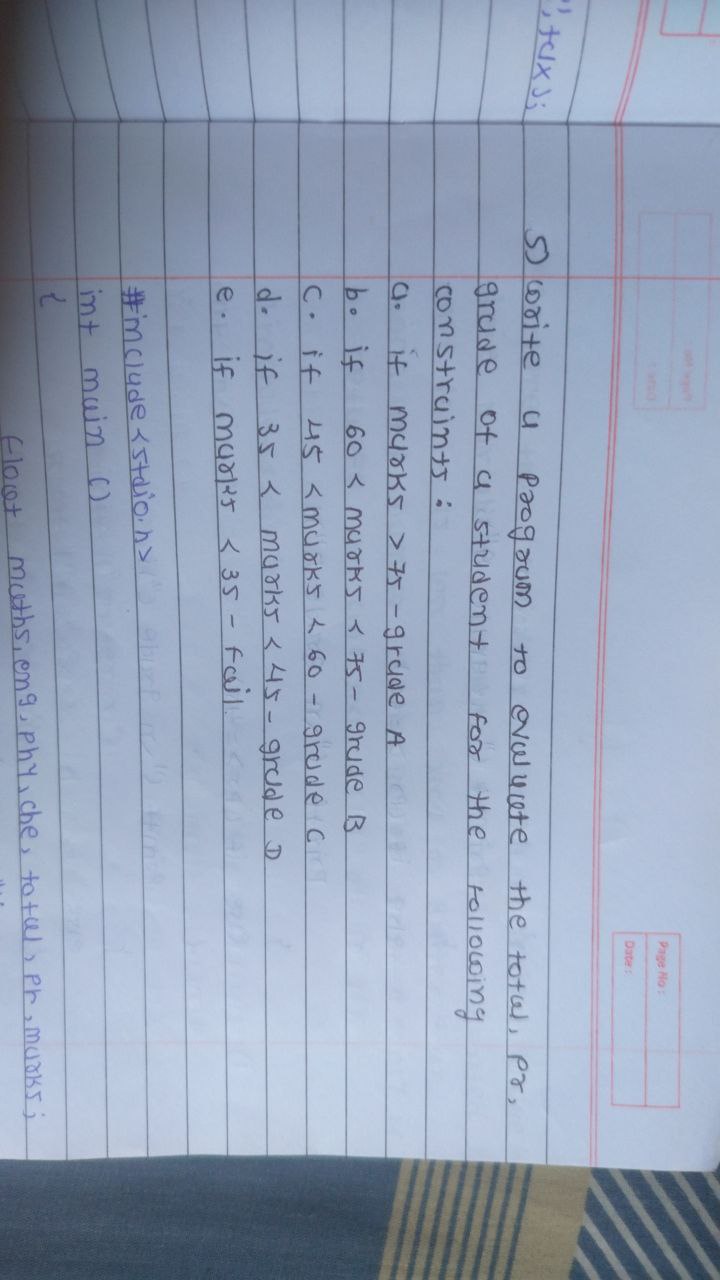 ", tax);
Page No:
Date:
5) write a program to evaluate the total, pr,
grade of a student for the following
constraints:
a. if marks > 75 - grade A
b. if 60 < marks < 75 - grade B
c. if 45 < marks < 60 - grade C
d. if 35 < marks < 45 - grade D
e. if marks < 35 - fail.
#include <stdio.h>
int main ()
{
float maths, eng, phy, che, total, pr, marks;